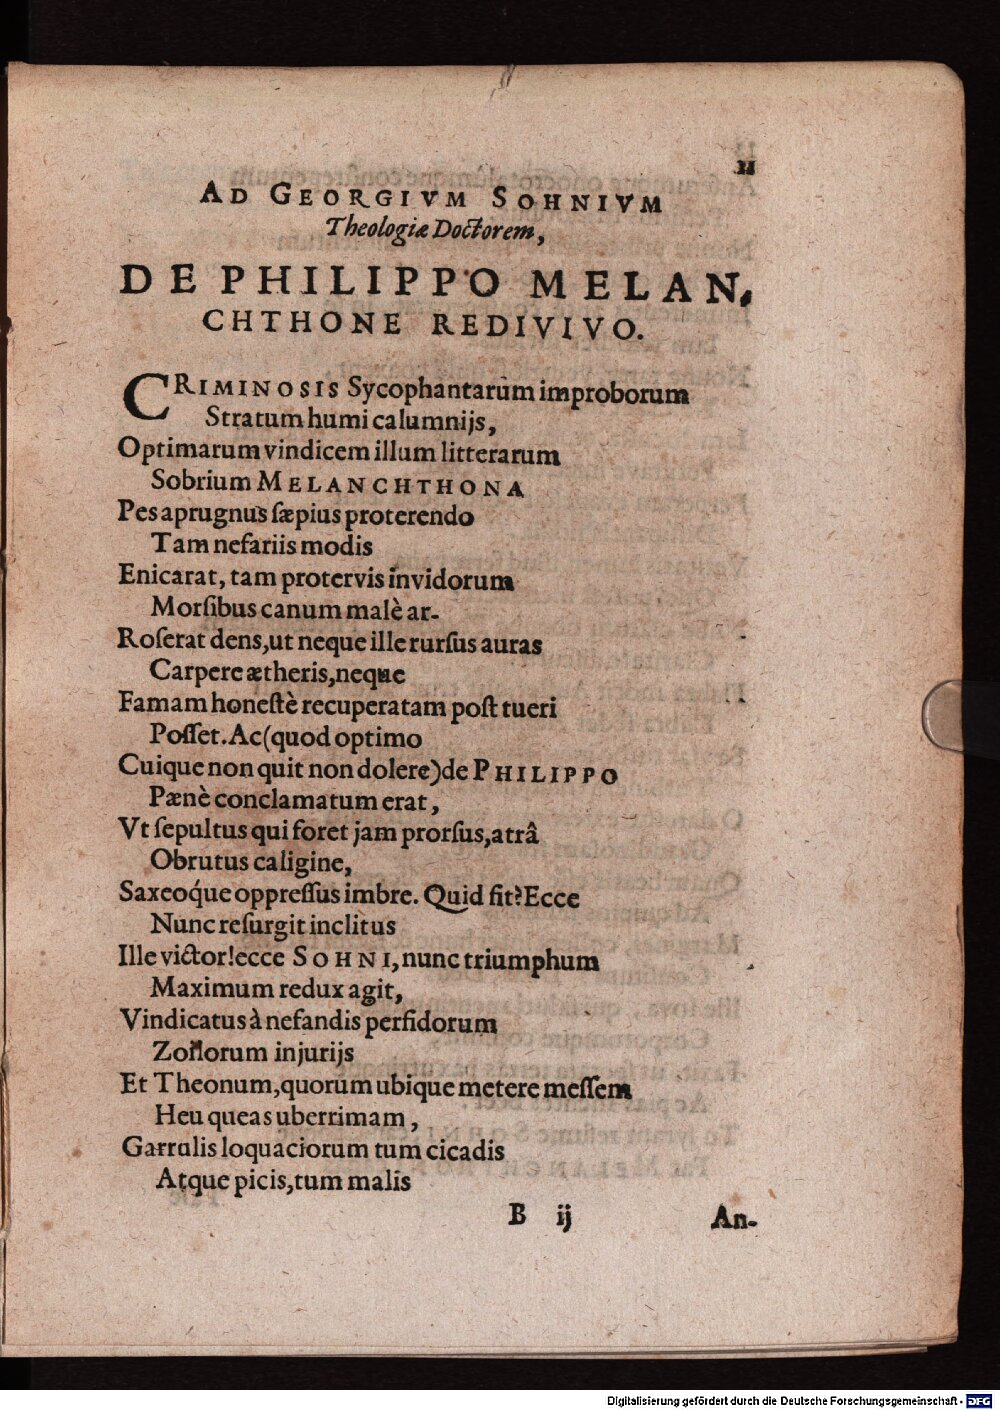 11
AD GEORGIVM SOHNIVM
Theologiæ Doctorem,
DE PHILIPPO MELAN-
CHTHONE REDIVIVO.
CRIMINOSIS Sycophantarum improborum
Stratum humi calumnijs,
Optimarum vindicem illum litterarum
Sobrium MELANCHTHONA
Pes aprugnus ſæpius proterendo
Tam nefariis modis
Enicarat, tam protervis invidorum
Morſibus canum malè ar-
Roſerat dens, ut neque ille rurſus auras
Carpere ætheris, neque
Famam honeſtè recuperatam poſt tueri
Poſſet. Ac (quod optimo
Cuique non quit non dolere) de PHILIPPO
Pænè conclamatum erat,
Vt ſepultus qui foret jam prorſus, atrâ
Obrutus caligine,
Saxeoq́ue oppreſſus imbre. Quid fit? Ecce
Nunc reſurgit inclitus
Ille victor! ecce SOHNI, nunc triumphum
Maximum redux agit,
Vindicatus à nefandis perfidorum
Zoilorum injurijs
Et Theonum, quorum ubique metere meſſem
Heu queas uberrimam,
Garrulis loquaciorum tum cicadis
Atque picis, tum malis
B ij An-
Digitalisierung gefördert durch die Deutsche Forschungsgemeinschaft - DFG